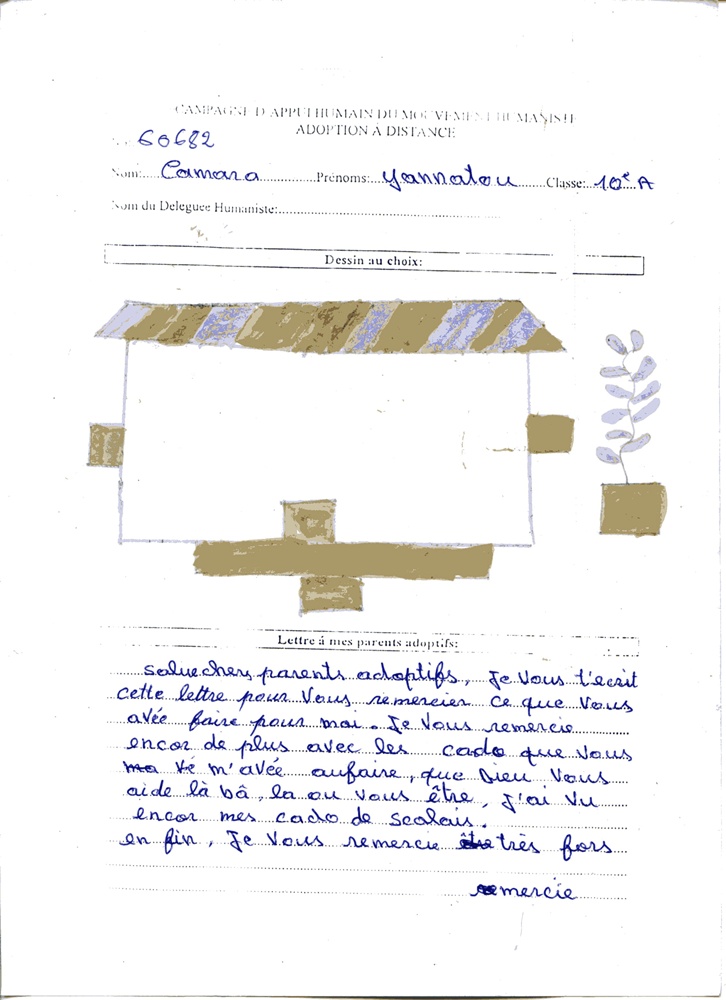 CAMPAGNE D'APPUI HUMAIN DU MOUVEMENT HUMANISTE
ADOPTION A DISTANCE
60682
Nom:.....Camara...............Prénoms:...Yannatou......Classe:..10e A
Nom du Deleguee Humaniste:
Dessin au choix:
Lettre á mes parents adoptifs:
Salue chers parents adoptifs, Je Vous t'ecrit
cette lettre pour Vous remercier ce que Vous
avée faire pour moi. Je Vous remercie
encor de plus avec les cado que Vous
m'avée aufaire, que Dieu Vous
aide là bâ, la ou Vous être, J'ai Vu
encor mes cado de scolais.
en fin, Je Vous remercie très fors
remercie